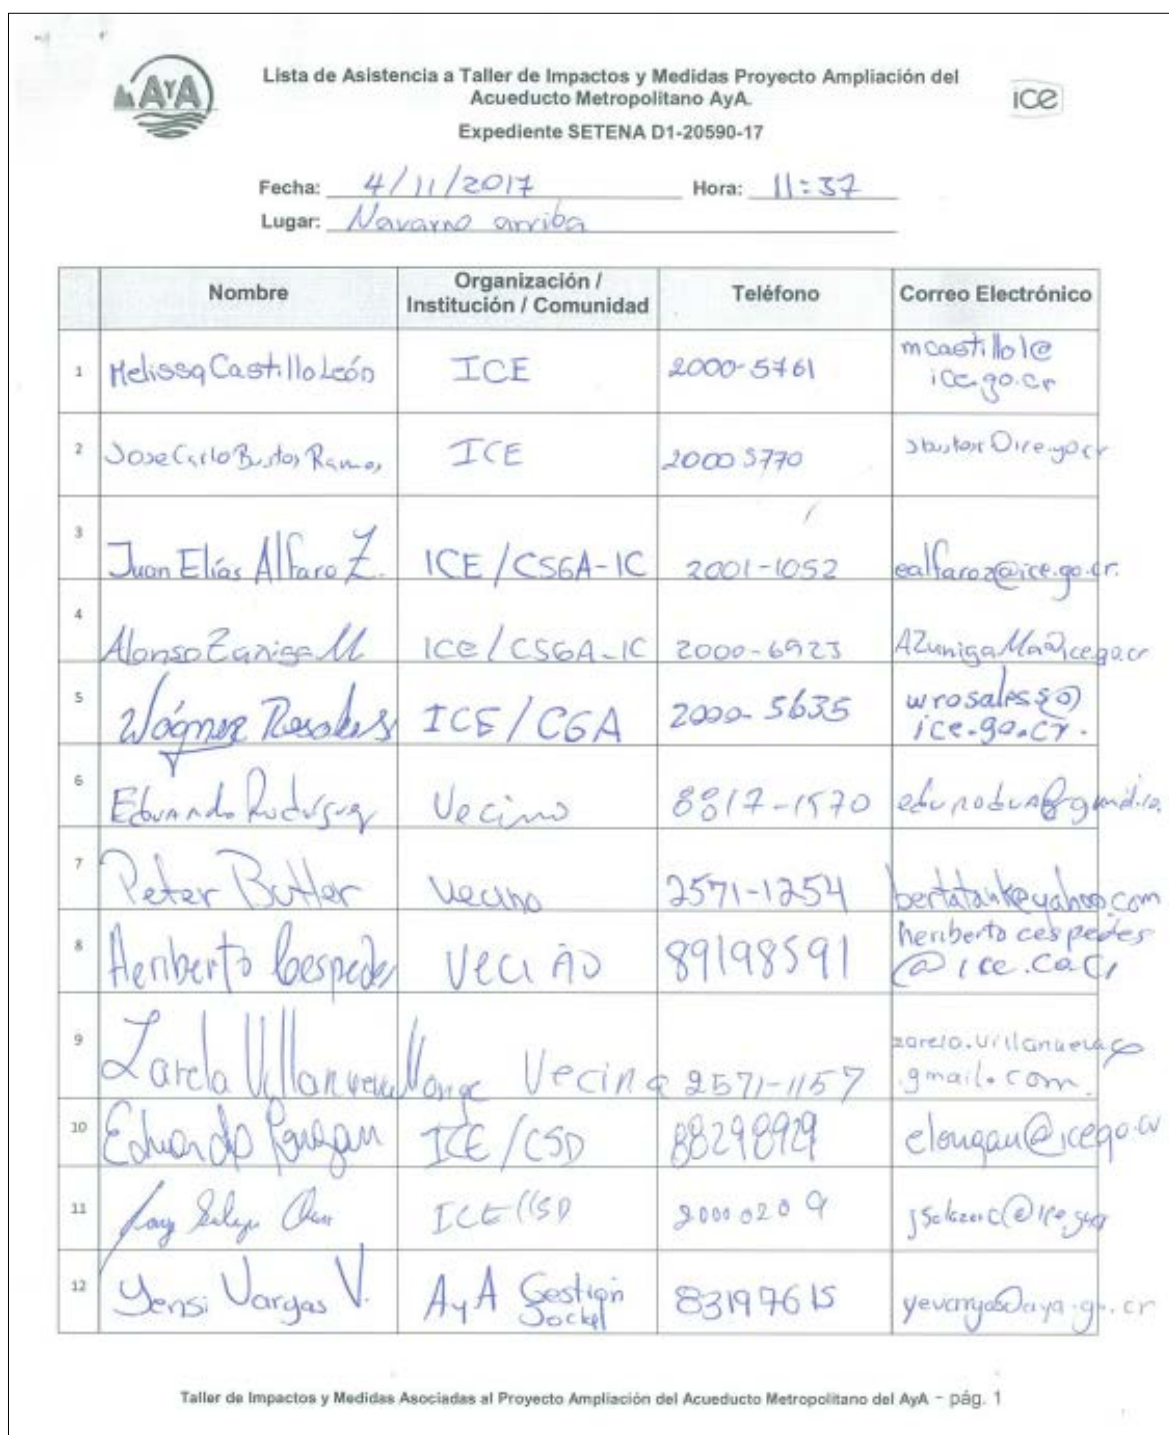 AyA
Lista de Asistencia a Taller de Impactos y Medidas Proyecto Ampliación del
Acueducto Metropolitano AyA.
Expediente SETENA D1-20590-17
ice
Fecha: 4/11/2017 Hora: 11:37
Lugar: Navarro arriba
Nombre Organización / Institución / Comunidad Teléfono Correo Electrónico
1 Melissa Castillo León ICE 2000-5761 mcastillol@
ice.go.cr
2 Jose Carlo Bustos Ramos ICE 2000 5770
3 Juan Elías Alfaro Z. ICE/CSGA-IC 2001-1052 ealfaroz@ice.go.cr.
4 Alonso Zúñiga M ICE/CSGA-IC 2000-6923 AZunigaMa@ice.go.cr
5 Wágner Rosales ICE/CGA 2000-5635 wrosaless@
ice.go.cr.
6 Eduardo Vecino 8817-1570
7 Peter Butler Vecino 2571-1254 bertatank@yahoo.com
8 Heriberto Cespedes Vecino 89198591 heriberto cespedes
@ice.co.cr
9 Zarela Villanueva Monge Vecina 2571-1157 zarela.villanueva@
gmail.com.
10 Eduardo ICE/CSD 88298929
11 ICE/CSD 2000 0209
12 Yensi Vargas V. AyA Gestión
Social 83197615 yevargas@aya.go.cr
Taller de Impactos y Medidas Asociadas al Proyecto Ampliación del Acueducto Metropolitano del AyA - pág. 1